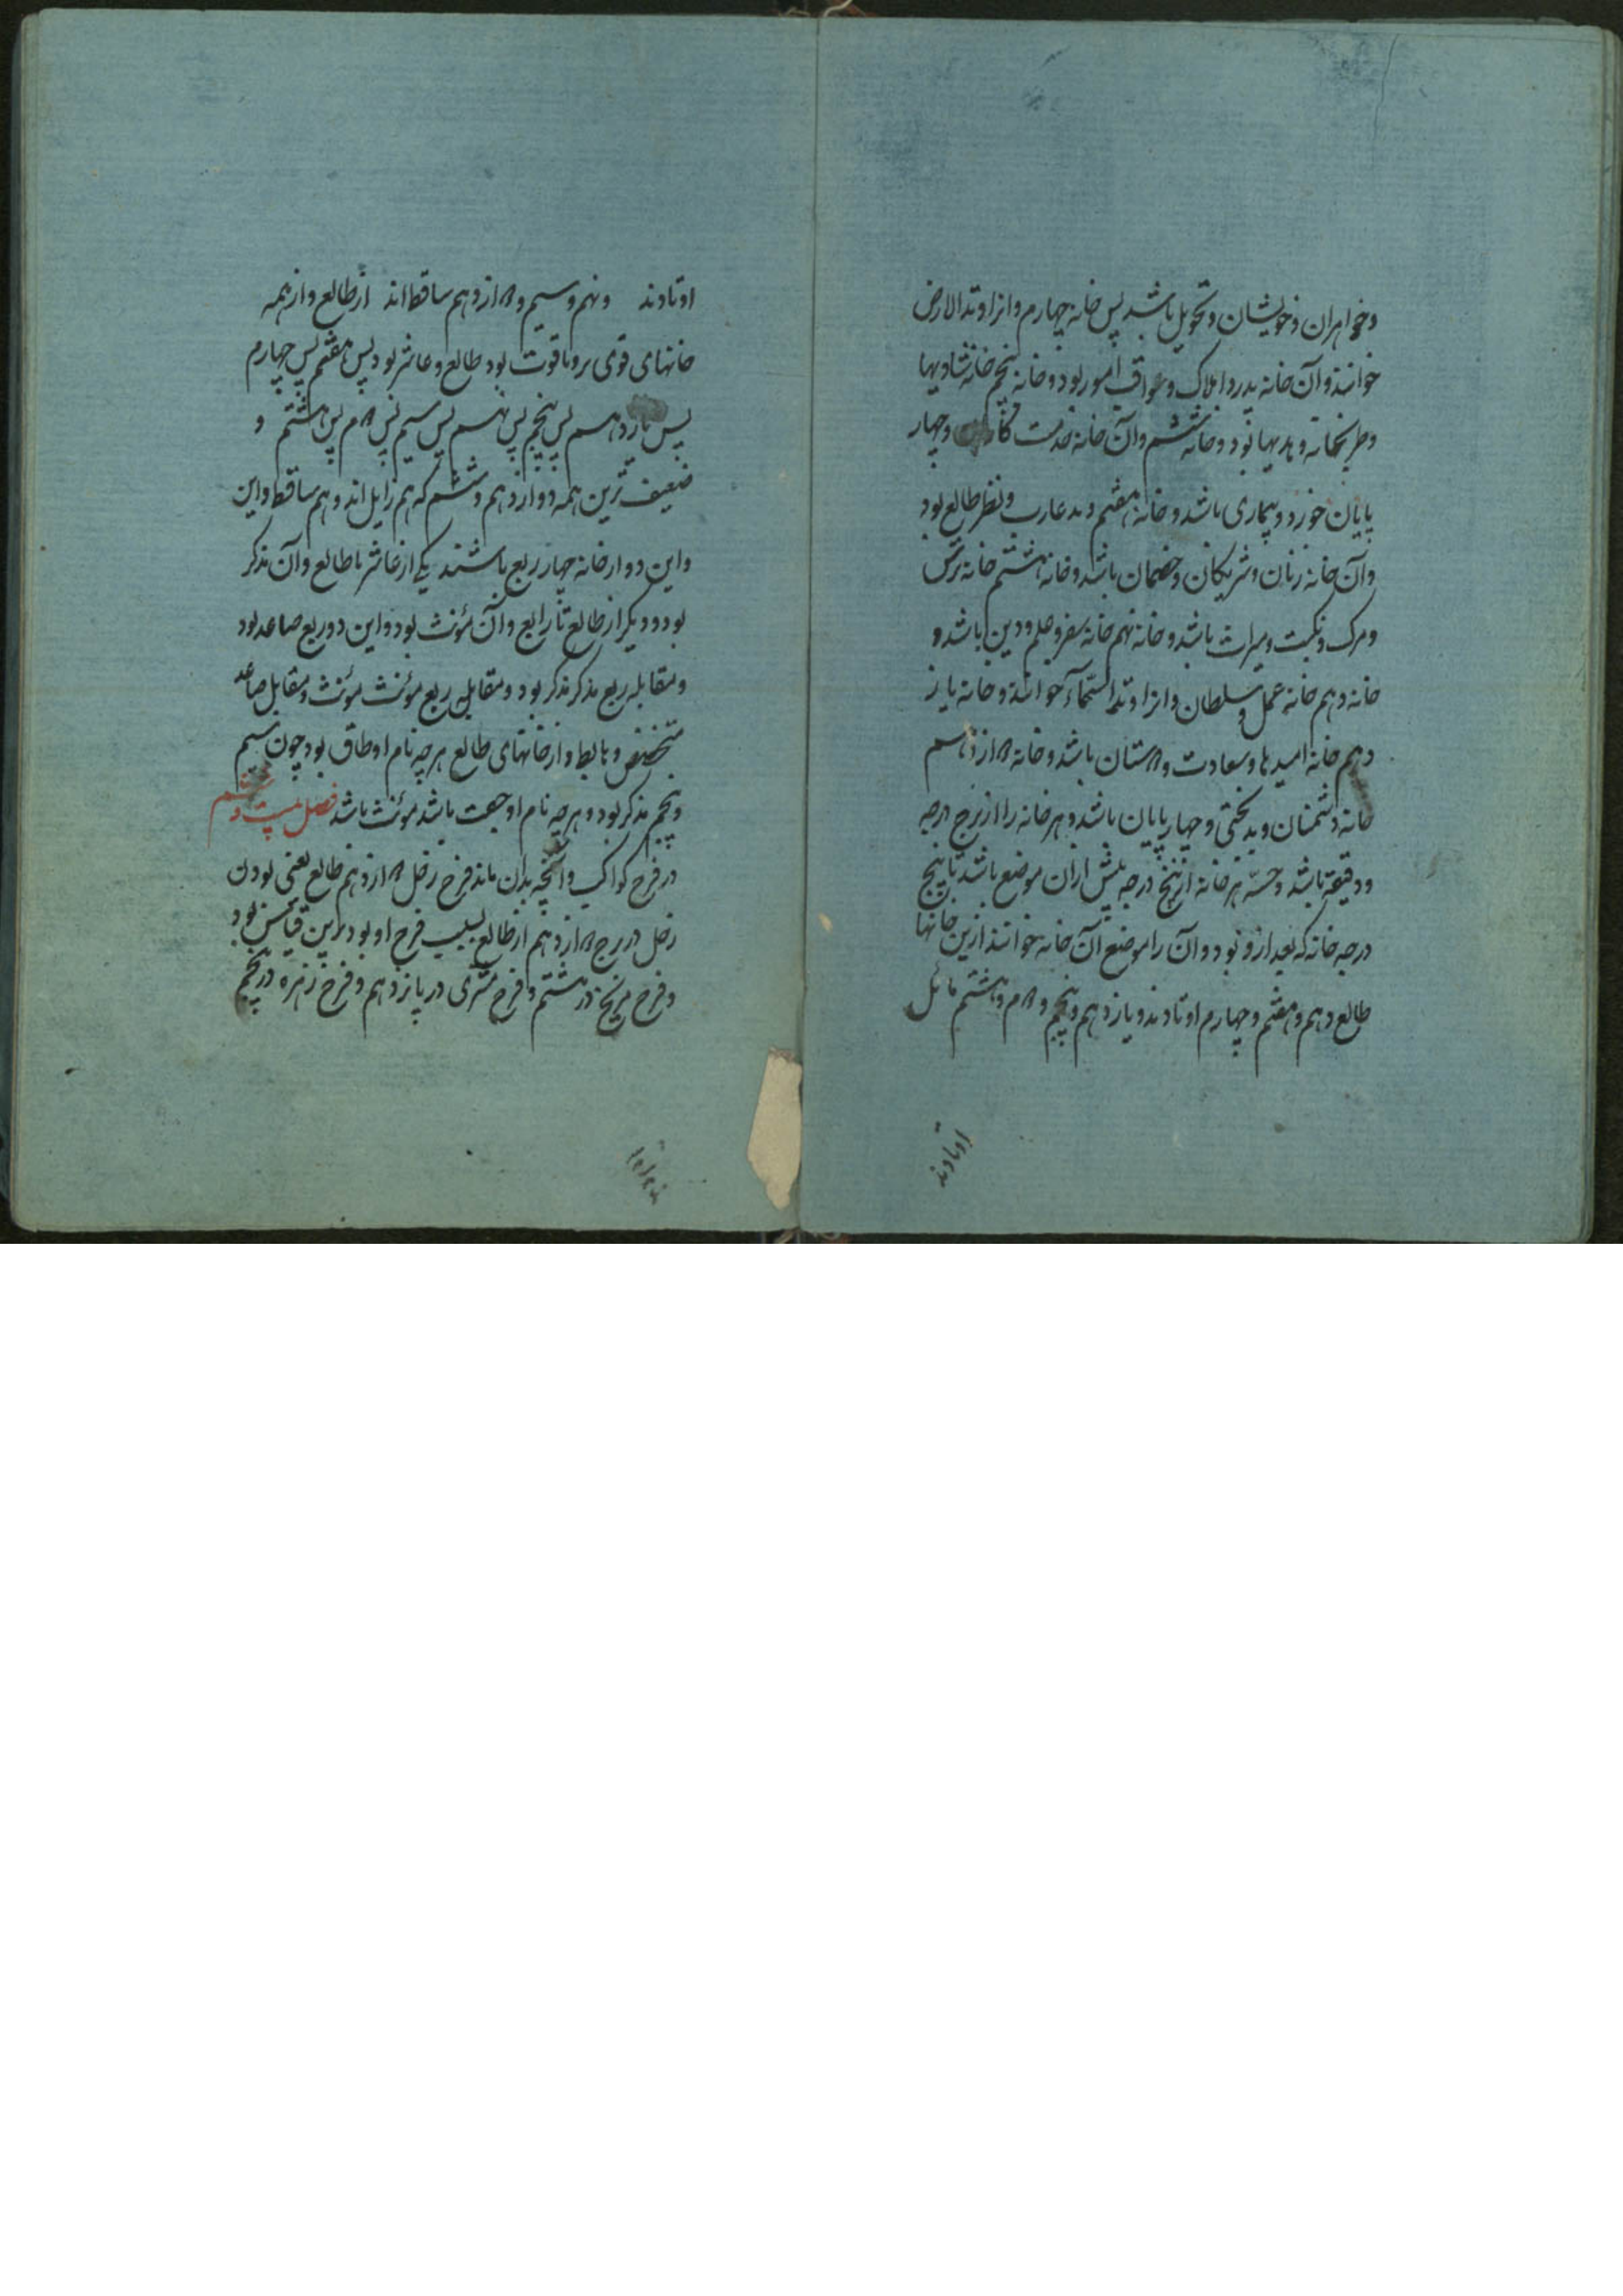 وخواهران وخویشان وتحویل باشد پس خانه چهارم وانرا وتدالارض
خوانند وآن خانه پدر واملاک وعواقب امور بود وخانه پنجم خانه شادیها
و وهدیها بود وخانه ششم وآن خانه خدمت وچهار
پایان خورد وبیماری باشد وخانه هفتم وتد غارب ونظر طالع بود
وآن خانه زنان وشریکان وخصمان باشد وخانه هشتم خانه ترس
ومرک ونکبت ومیراث باشد وخانه نهم خانه سفر وعلم ودین باشد و
خانه دهم خانه عمل وسلطان وانرا وتدالسّمآء خوانند وخانه یاز
دهم خانه امیدها وسعادت و۲ستان باشد وخانه ۲ازدهم
خانه دشمنان وبدبختی وچهارپایان باشد وهر خانه را از برج درجه
ودقیقه باشد و هر خانه از پنج درجه پیش ازان موضع باشد تا پنج
درجه خانه که بعد ازو بود وآن را موضع آن خانه خوانند ازین خانها
طالع ودهم وهفتم وچهارم اوتادند ویازدهم وپنجم و۲م وهشتم مائل
اوتادند
اوتادند ونهم وسیم و۲ازدهم ساقط اند از طالع وازهمه
خانهای قوی بود طالع وعاشر بود پس هفتم پس چهارم
پس یازدهم پس پنجم پس نهم پس سیم پس ۲م پس هشتم و
ضعیف ترین همه دوازدهم وششم که هم زایل اند وهم ساقط واین
واین دوازخانه چهار ربع باشند یکی از عاشر تا طالع وآن مذکر
بود ودیکر از طالع تا رابع وآن مؤنث بود واین دو ربع صاعد بود
ومقابله ربع مذکر مذکر بود ومقابله ربع مؤنث مؤنث ومقابل صاعد
منخفض وهابط واز خانهای طالع هرچه نام او طاق بود چون سیم
وپنجم مذکر بود وهرچه نام او جفت باشد مؤنث باشد فصل بیست و
در فرح کواکب وآنچه بدان ماند فرح زحل ۲ازدهم طالع یعنی بودن
زحل در برج ۲ازدهم از طالع بسبب فرح او بود برین قیاس بود
وفرح مریخ در هشتم وفرح مشتری در یازدهم وفرح زهره در پنجم